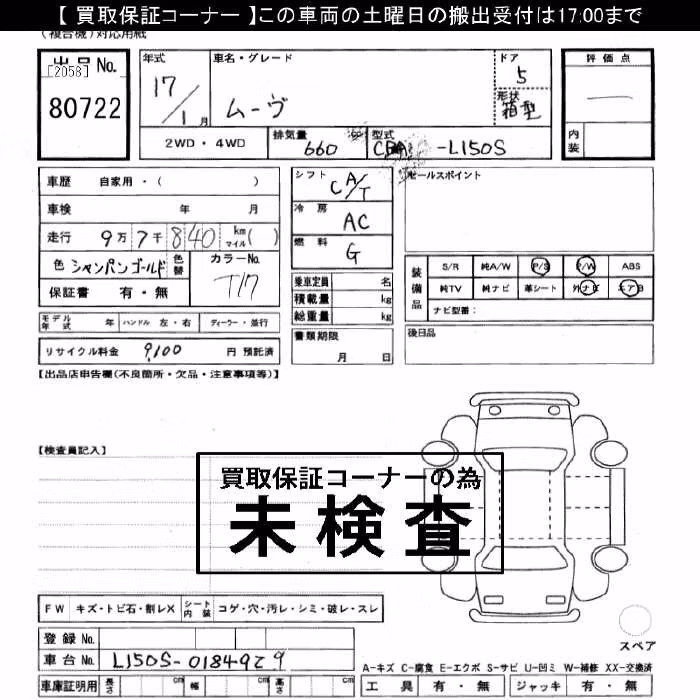 【 買取保証コーナー 】この車両の土曜日の搬出受付は17:00まで
(複合機)対応用紙
出品 No.
[2058]
80722
年式
17/1月
車名・グレード
ムーヴ
ドア
5
形状
箱型
2WD・4WD
排気量
660 cc
型式
CBA-L150S
評価点
―
内装
車歴 自家用・( )
車検 年 月
走行 9万7千840 km マイル( )
色 シャンパンゴールド 色替
カラーNo.
T17
保証書 有・無
モデル年式 年 ハンドル 左・右 ディーラー・並行
リサイクル料金 9,100 円 預託済
シフト CA/T
冷房 AC
燃料 G
乗車定員 名
積載量 kg
総重量 kg
書類期限
月 日
セールスポイント
装備品
S/R 純A/W P/S P/W ABS
純TV 純ナビ 革シート 外ナビ エアB
ナビ型番:
後日品
【出品店申告欄(不良箇所・欠品・注意事項等)】
【検査員記入】
買取保証コーナーの為
未検査
FW キズ・トビ石・割レX シート内装 コゲ・穴・汚レ・シミ・破レ・スレ
登録 No.
車台 No. L150S-0184929
車庫証明用 長さ cm 幅 cm 高さ cm
スペア
A-キズ C-腐食 E-エクボ S-サビ U-凹ミ W-補修 XX-交換済
工具 有・無 ジャッキ 有・無